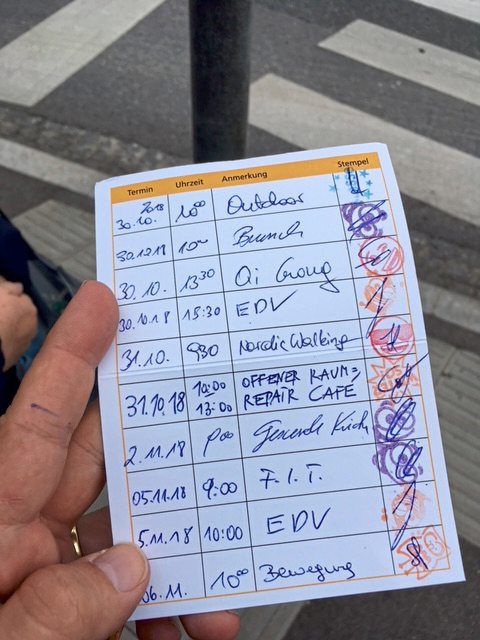 Termin Uhrzeit Anmerkung Stempel
2018
30.10. 10⁰⁰ Outdoor
30.10.18 10⁰⁰ Brunch
30.10. 13³⁰ Qi Gong
30.10.18 15:30 EDV
31.10. 9³⁰ Nordic Walking
31.10.18 10:00 OFFENER RAUM:
13:00 REPAIR CAFE
2.11.18 9⁰⁰
05.11.18 9:00 F.I.T.
5.11.18 10:00 EDV
06.11. 10⁰⁰ Bewegung